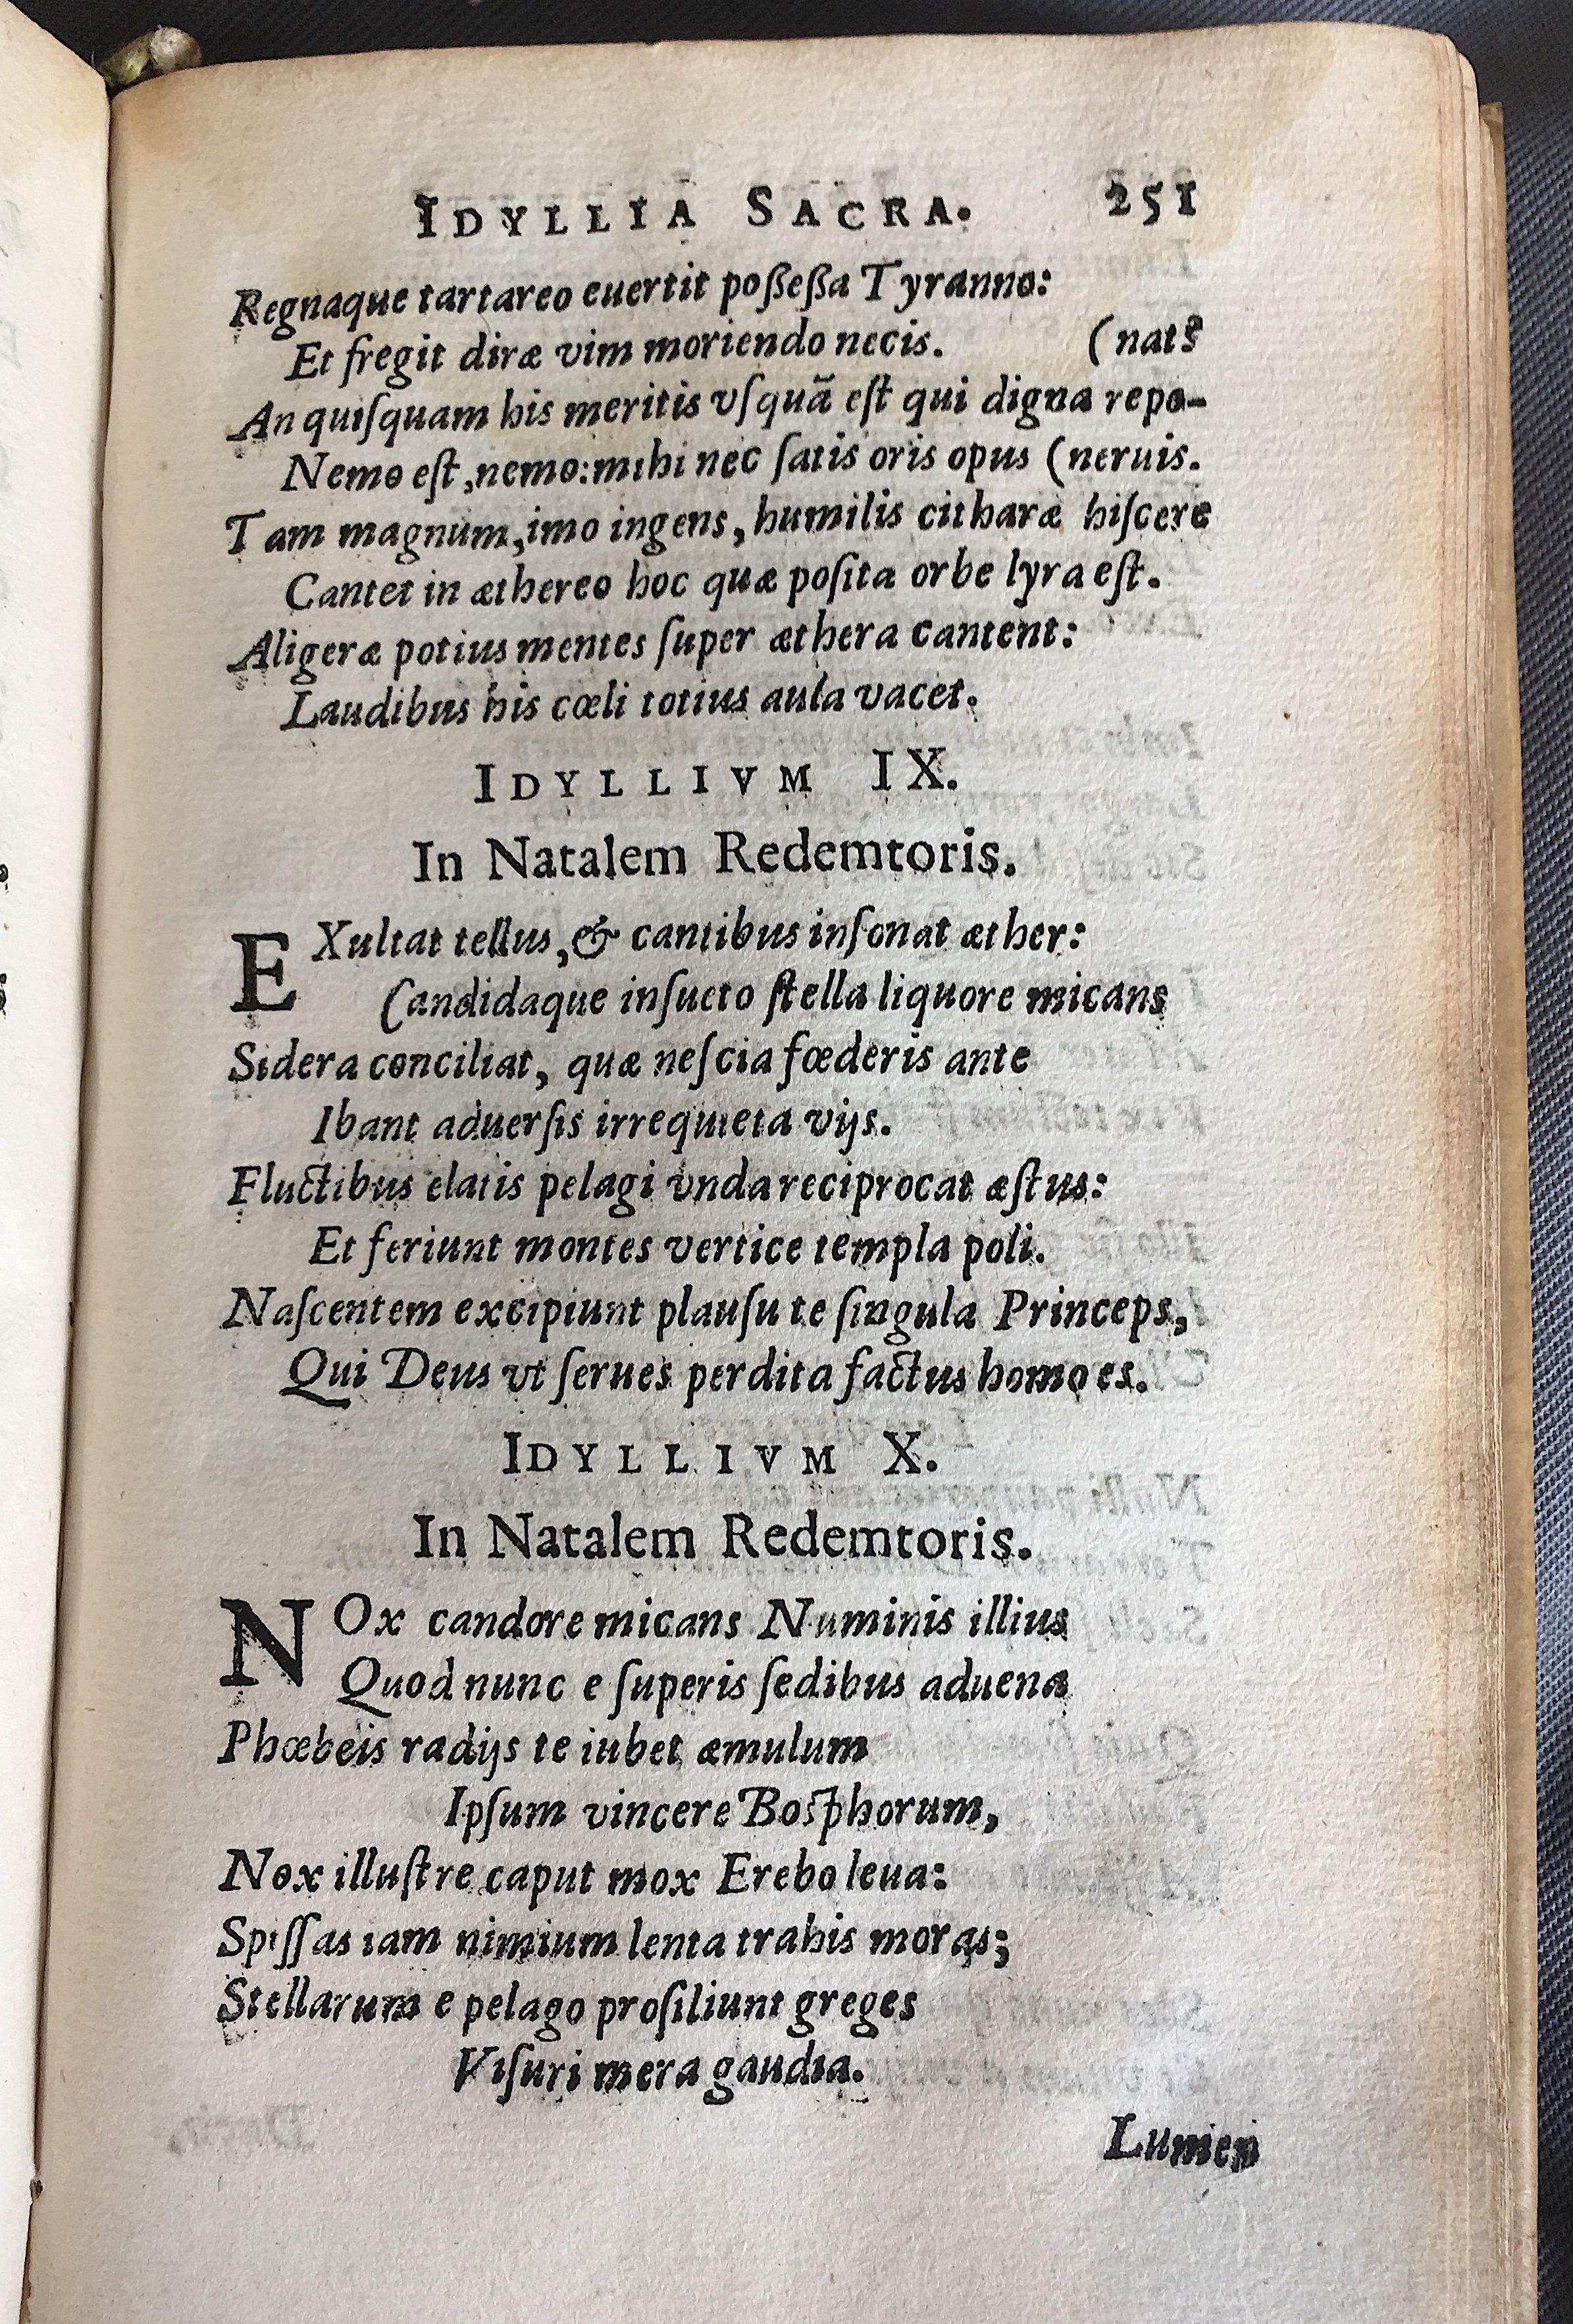 IDYLLIA SACRA. 251
Regnaque tartareo euertit poßeßa Tyranno:
Et fregit diræ vim moriendo necis. (nat?
An quiſquam his meritis vſquã eſt qui digna repo-
Nemo eſt, nemo: mihi nec ſatis oris opus (neruis.
Tam magnum, imo ingens, humilis citharæ hiſcere
Cantet in æthereo hoc quæ poſita orbe lyra eſt.
Aligeræ potius mentes ſuper æthera cantent:
Laudibus his cœli totius aula vacet.
IDYLLIVM IX.
In Natalem Redemtoris.
EXultat tellus, & cantibus inſonat æther:
Candidaque inſueto ſtella liquore micans
Sidera conciliat, quæ neſcia fœderis ante
Ibant aduerſis irrequieta vijs.
Fluctibus elatis pelagi vnda reciprocat æſtus:
Et feriunt montes vertice templa poli.
Naſcentem excipiunt plauſu te ſingula Princeps,
Qui Deus vt ſerues perdita factus homo es.
IDYLLIVM X.
In Natalem Redemtoris.
NOx candore micans Numinis illius
Quod nunc e ſuperis ſedibus aduena
Phœbeis radijs te iubet æmulum
Ipſum vincere Boſphorum,
Nox illuſtre caput mox Erebo leua:
Spiſſas iam nimium lenta trahis moras;
Stellarum e pelago proſiliunt greges
Viſuri mera gaudia.
Lumen